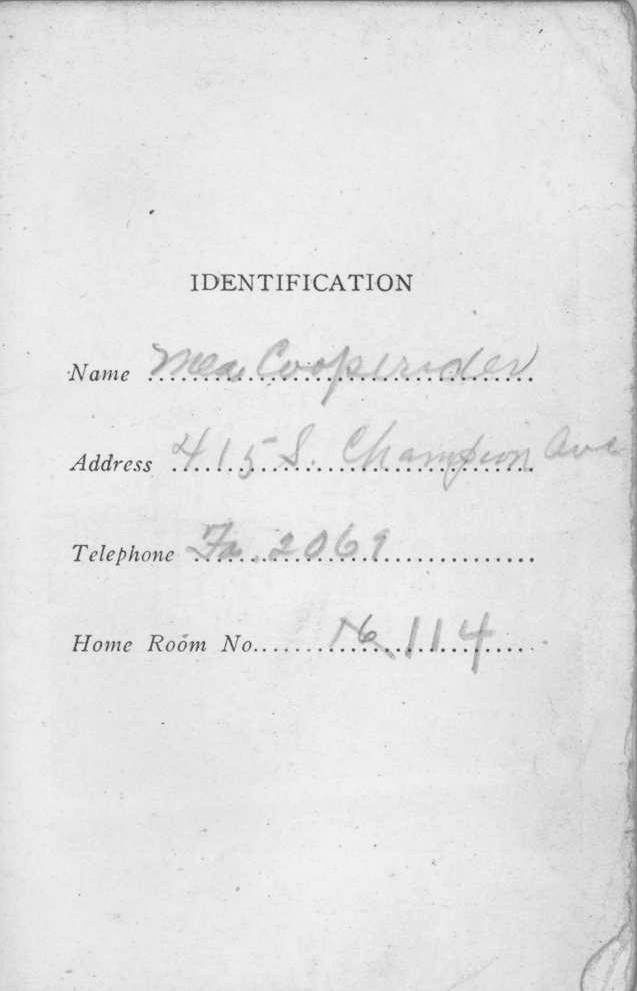 IDENTIFICATION
Name Cooperider
Address 415 S. Champion Ave
Telephone Fa. 2069
Home Room No. 114